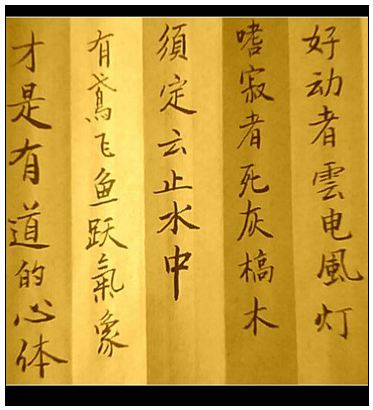 好动者雲电風灯
嗜寂者死灰槁木
須定云止水中
有鳶飞鱼跃氣象
才是有道的心体